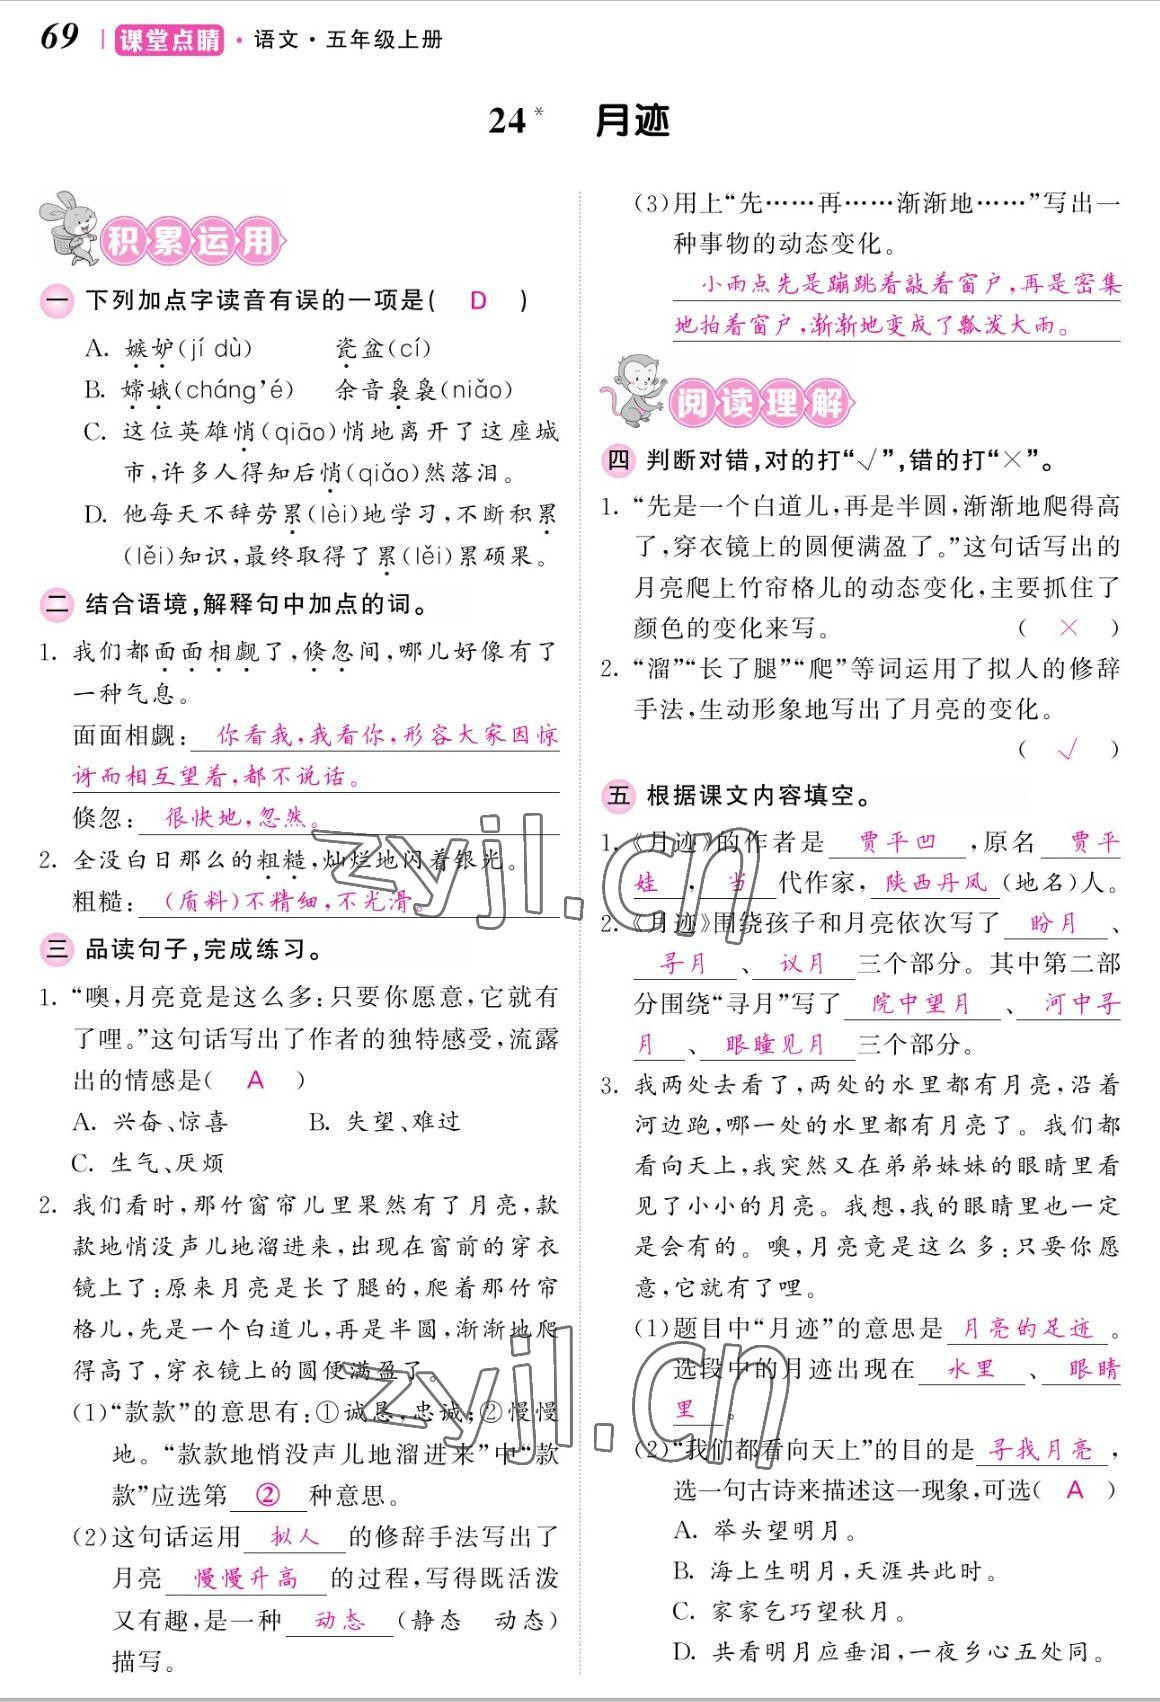 69 课堂点睛·语文·五年级上册
24* 月迹
积累运用
一 下列加点字读音有误的一项是( D )
A. 嫉妒(jí dù) 瓷盆(cí)
B. 嫦娥(cháng'é) 余音袅袅(niǎo)
C. 这位英雄悄(qiāo)悄地离开了这座城
市,许多人得知后悄(qiǎo)然落泪。
D. 他每天不辞劳累(lèi)地学习,不断积累
(lěi)知识,最终取得了累(lěi)累硕果。
二 结合语境,解释句中加点的词。
1. 我们都面面相觑了,倏忽间,哪儿好像有了
一种气息。
面面相觑: 你看我,我看你,形容大家因惊
讶而相互望着,都不说话。
倏忽: 很快地,忽然。
2. 全没白日那么的粗糙,灿烂地闪着银光。
粗糙: (质料)不精细,不光滑。
三 品读句子,完成练习。
1. “噢,月亮竟是这么多:只要你愿意,它就有
了哩。”这句话写出了作者的独特感受,流露
出的情感是( A )
A. 兴奋、惊喜 B. 失望、难过
C. 生气、厌烦
2. 我们看时,那竹窗帘儿里果然有了月亮,款
款地悄没声儿地溜进来,出现在窗前的穿衣
镜上了:原来月亮是长了腿的,爬着那竹帘
格儿,先是一个白道儿,再是半圆,渐渐地爬
得高了,穿衣镜上的圆便满盈了。
(1)“款款”的意思有:①诚恳,忠诚;②慢慢
地。“款款地悄没声儿地溜进来”中“款
款”应选第 ② 种意思。
(2)这句话运用 拟人 的修辞手法写出了
月亮 慢慢升高 的过程,写得既活泼
又有趣,是一种 动态 (静态 动态)
描写。
(3)用上“先……再……渐渐地……”写出一
种事物的动态变化。
小雨点先是蹦跳着敲着窗户,再是密集
地拍着窗户,渐渐地变成了瓢泼大雨。
阅读理解
四 判断对错,对的打“√”,错的打“×”。
1. “先是一个白道儿,再是半圆,渐渐地爬得高
了,穿衣镜上的圆便满盈了。”这句话写出的
月亮爬上竹帘格儿的动态变化,主要抓住了
颜色的变化来写。 ( × )
2. “溜”“长了腿”“爬”等词运用了拟人的修辞
手法,生动形象地写出了月亮的变化。
( √ )
五 根据课文内容填空。
1. 《月迹》的作者是 贾平凹 ,原名 贾平
娃 , 当 代作家, 陕西丹凤 (地名)人。
2. 《月迹》围绕孩子和月亮依次写了 盼月 、
寻月 、 议月 三个部分。其中第二部
分围绕“寻月”写了 院中望月 、 河中寻
月 、 眼瞳见月 三个部分。
3. 我两处去看了,两处的水里都有月亮,沿着
河边跑,哪一处的水里都有月亮了。我们都
看向天上,我突然又在弟弟妹妹的眼睛里看
见了小小的月亮。我想,我的眼睛里也一定
是会有的。噢,月亮竟是这么多:只要你愿
意,它就有了哩。
(1)题目中“月迹”的意思是 月亮的足迹 。
选段中的月迹出现在 水里 、 眼睛
里 。
(2)“我们都看向天上”的目的是 寻找月亮 ,
选一句古诗来描述这一现象,可选( A )
A. 举头望明月。
B. 海上生明月,天涯共此时。
C. 家家乞巧望秋月。
D. 共看明月应垂泪,一夜乡心五处同。
zyjl.cn
zyjl.cn